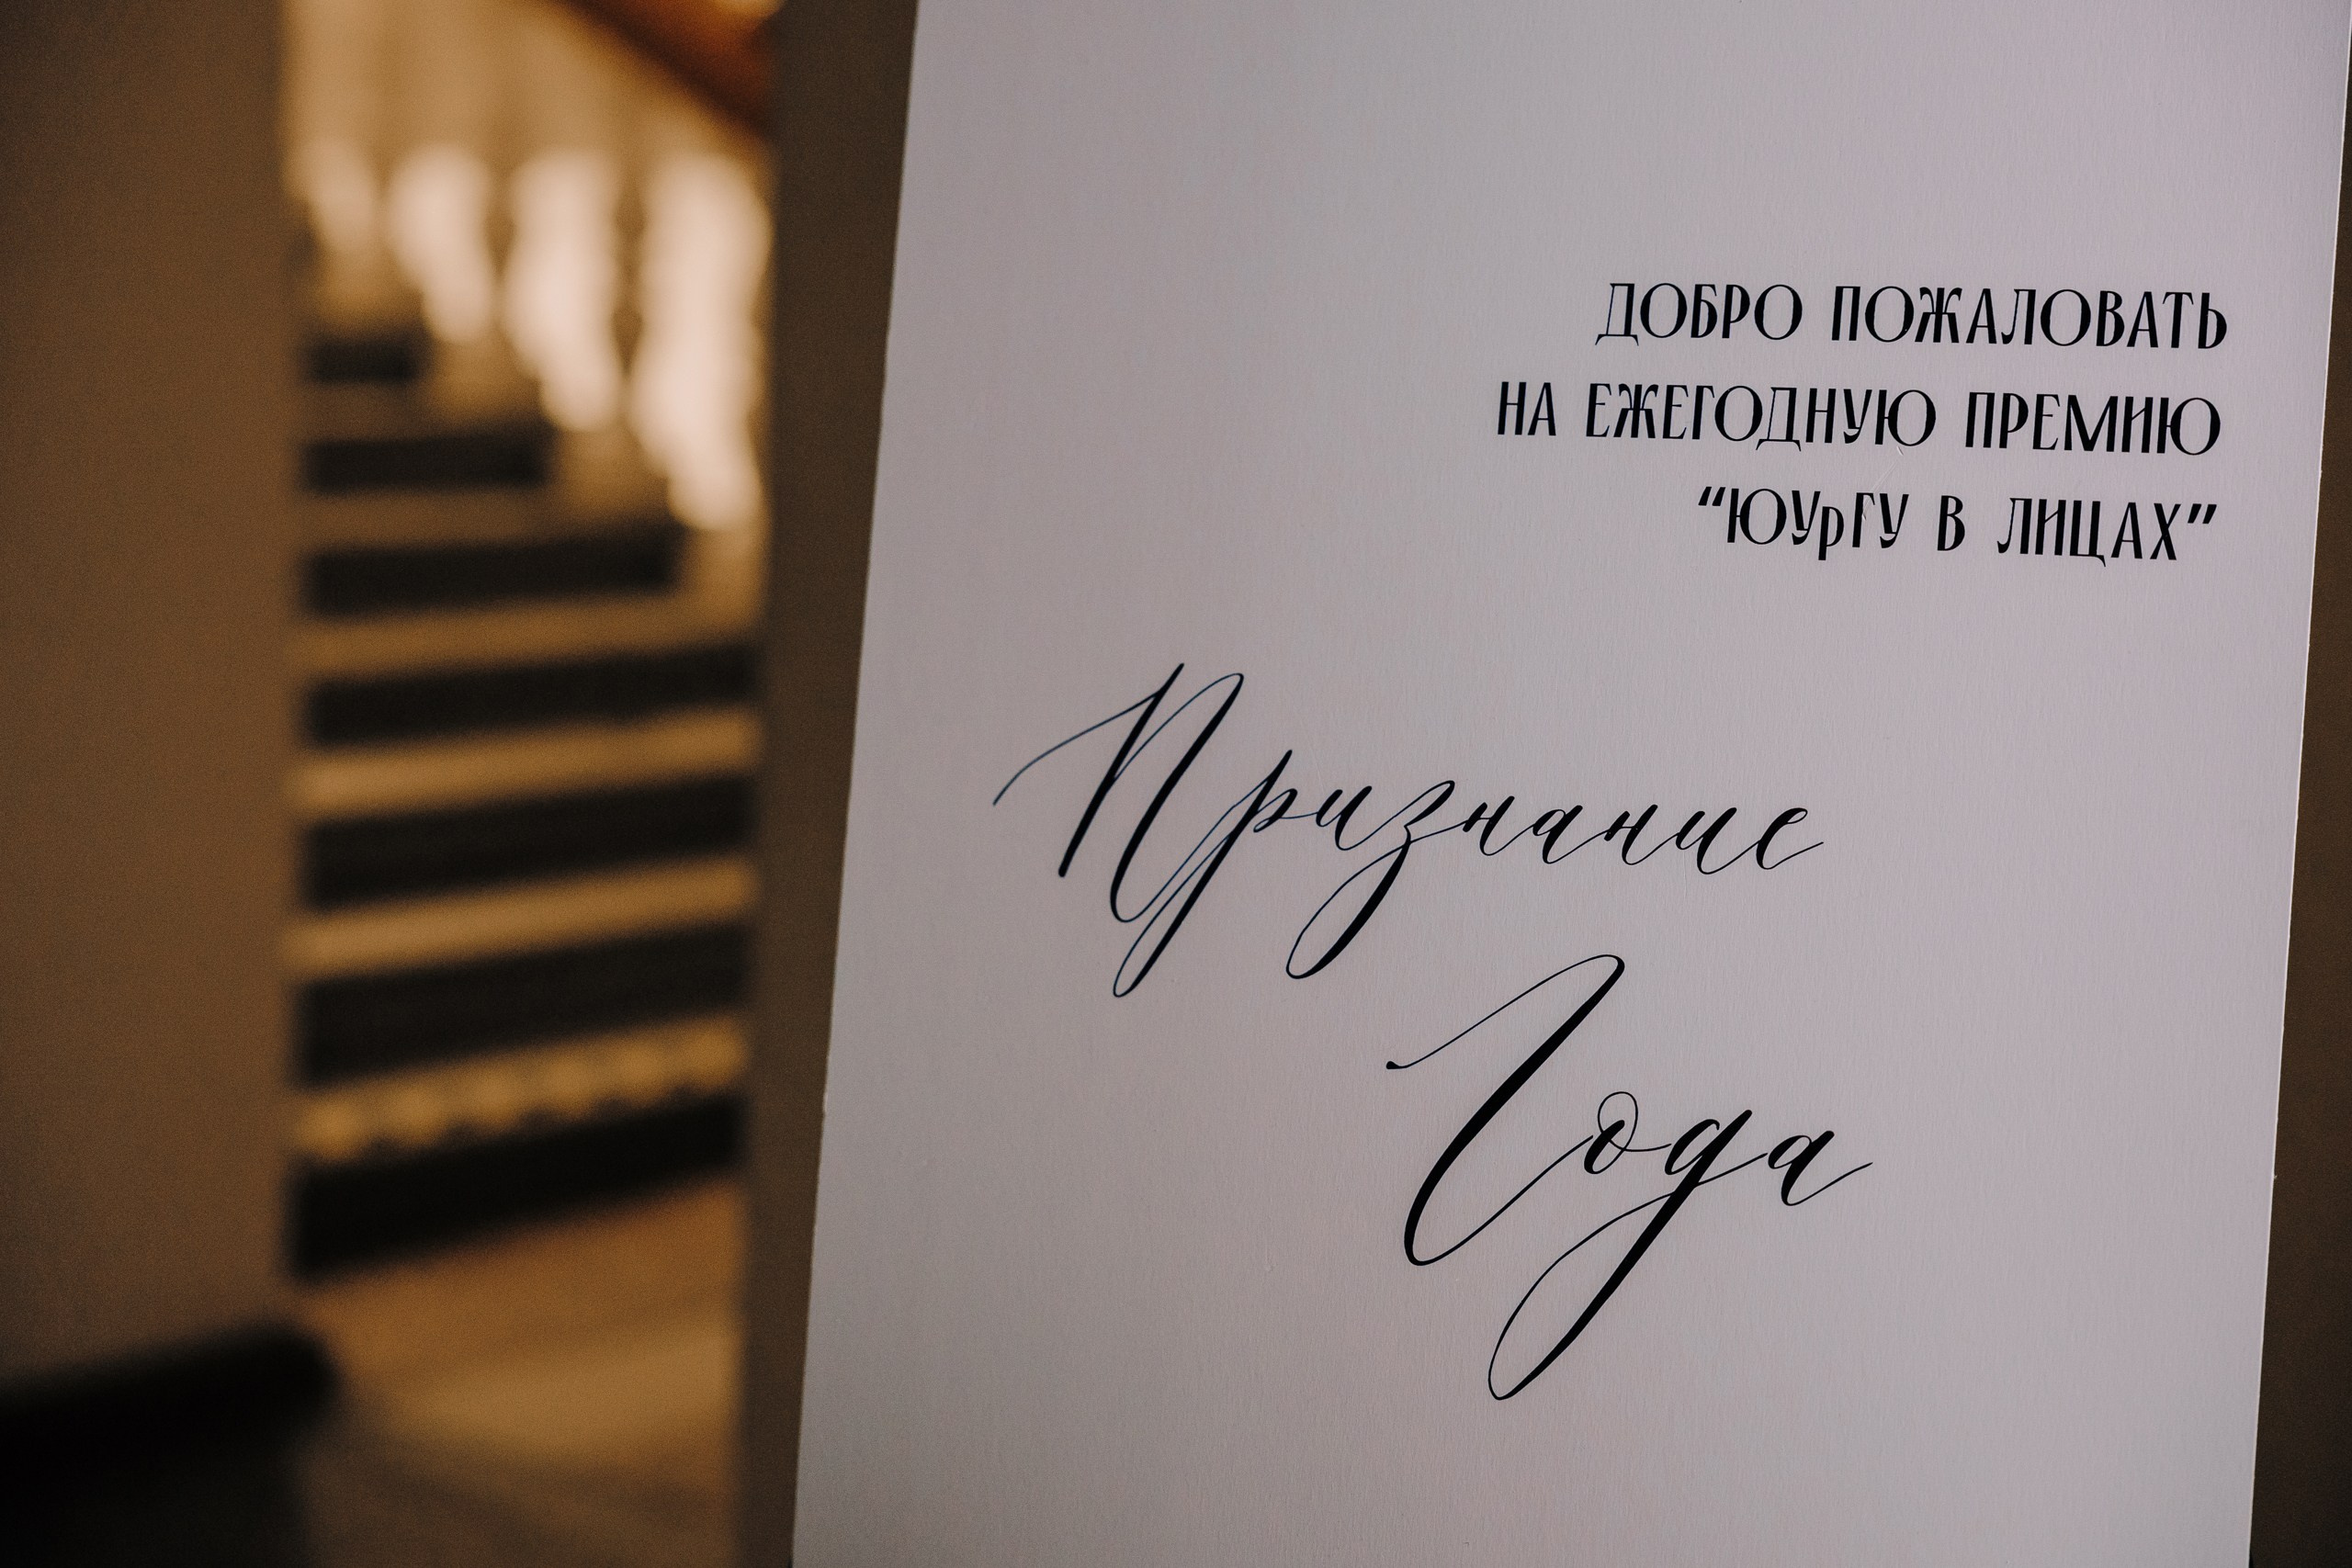 ДОБРО ПОЖАЛОВАТЬ
НА ЕЖЕГОДНУЮ ПРЕМИЮ
“ЮУрГУ В ЛИЦАХ”
Признание
Года